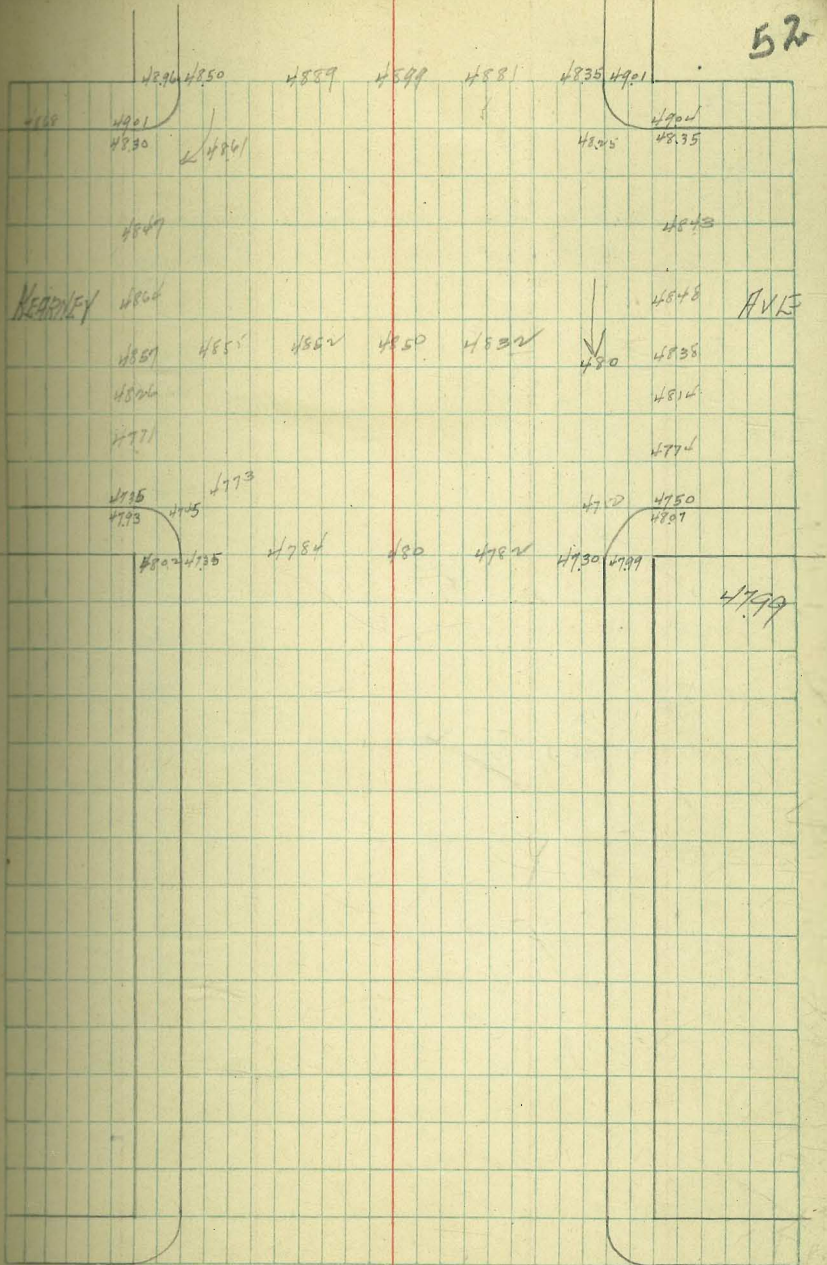 52
48.96 48.50 4889 4899 4881 48.35 49.01
4868 4901 4904
48.30 4861 48.25 48.35
4847 4843
KEARNEY 4864 4848 AVE
4857 4855 4852 4850 4832 480 4838
4826 4814
4771 4774
4773
47.35 4745 4750
47.93 48.07
48.02 47.35 4784 480 4782 47.30 47.99
47.99